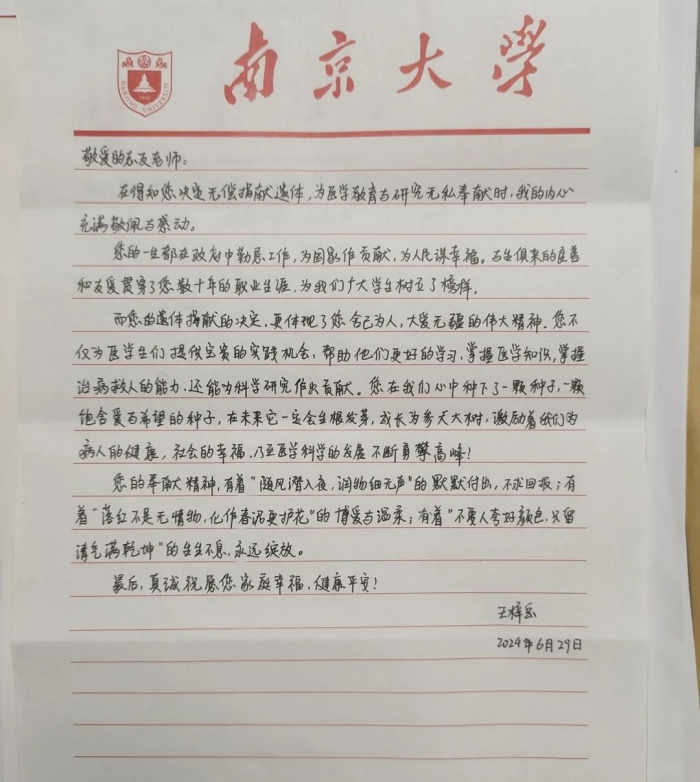 南京大学
NANJING UNIVERSITY
1902
敬爱的志友老师：
在得知您决定无偿捐献遗体，为医学教育与研究无私奉献时，我的内心
充满敬佩与感动。
您的一生都在政府中勤恳工作，为国家作贡献，为人民谋幸福。与生俱来的良善
和友爱贯穿了您数十年的职业生涯，为我们广大学生树立了榜样。
而您的遗体捐献的决定，更体现了您舍己为人，大爱无疆的伟大精神。您不
仅为医学生们提供宝贵的实践机会，帮助他们更好的学习、掌握医学知识，掌握
治病救人的能力，还能为科学研究作出贡献。您在我们心中种下了一颗种子，一颗
饱含爱与希望的种子，在未来它一定会生根发芽，成长为参天大树，激励着我们为
病人的健康，社会的幸福，乃至医学科学的发展不断勇攀高峰！
您的奉献精神，有着“随风潜入夜，润物细无声”的默默付出，不求回报；有
着“落红不是无情物，化作春泥更护花”的博爱与温柔；有着“不要人夸好颜色，只留
清气满乾坤”的生生不息，永远绽放。
最后，真诚祝愿您家庭幸福，健康平安！
王梓岳
2024年6月29日